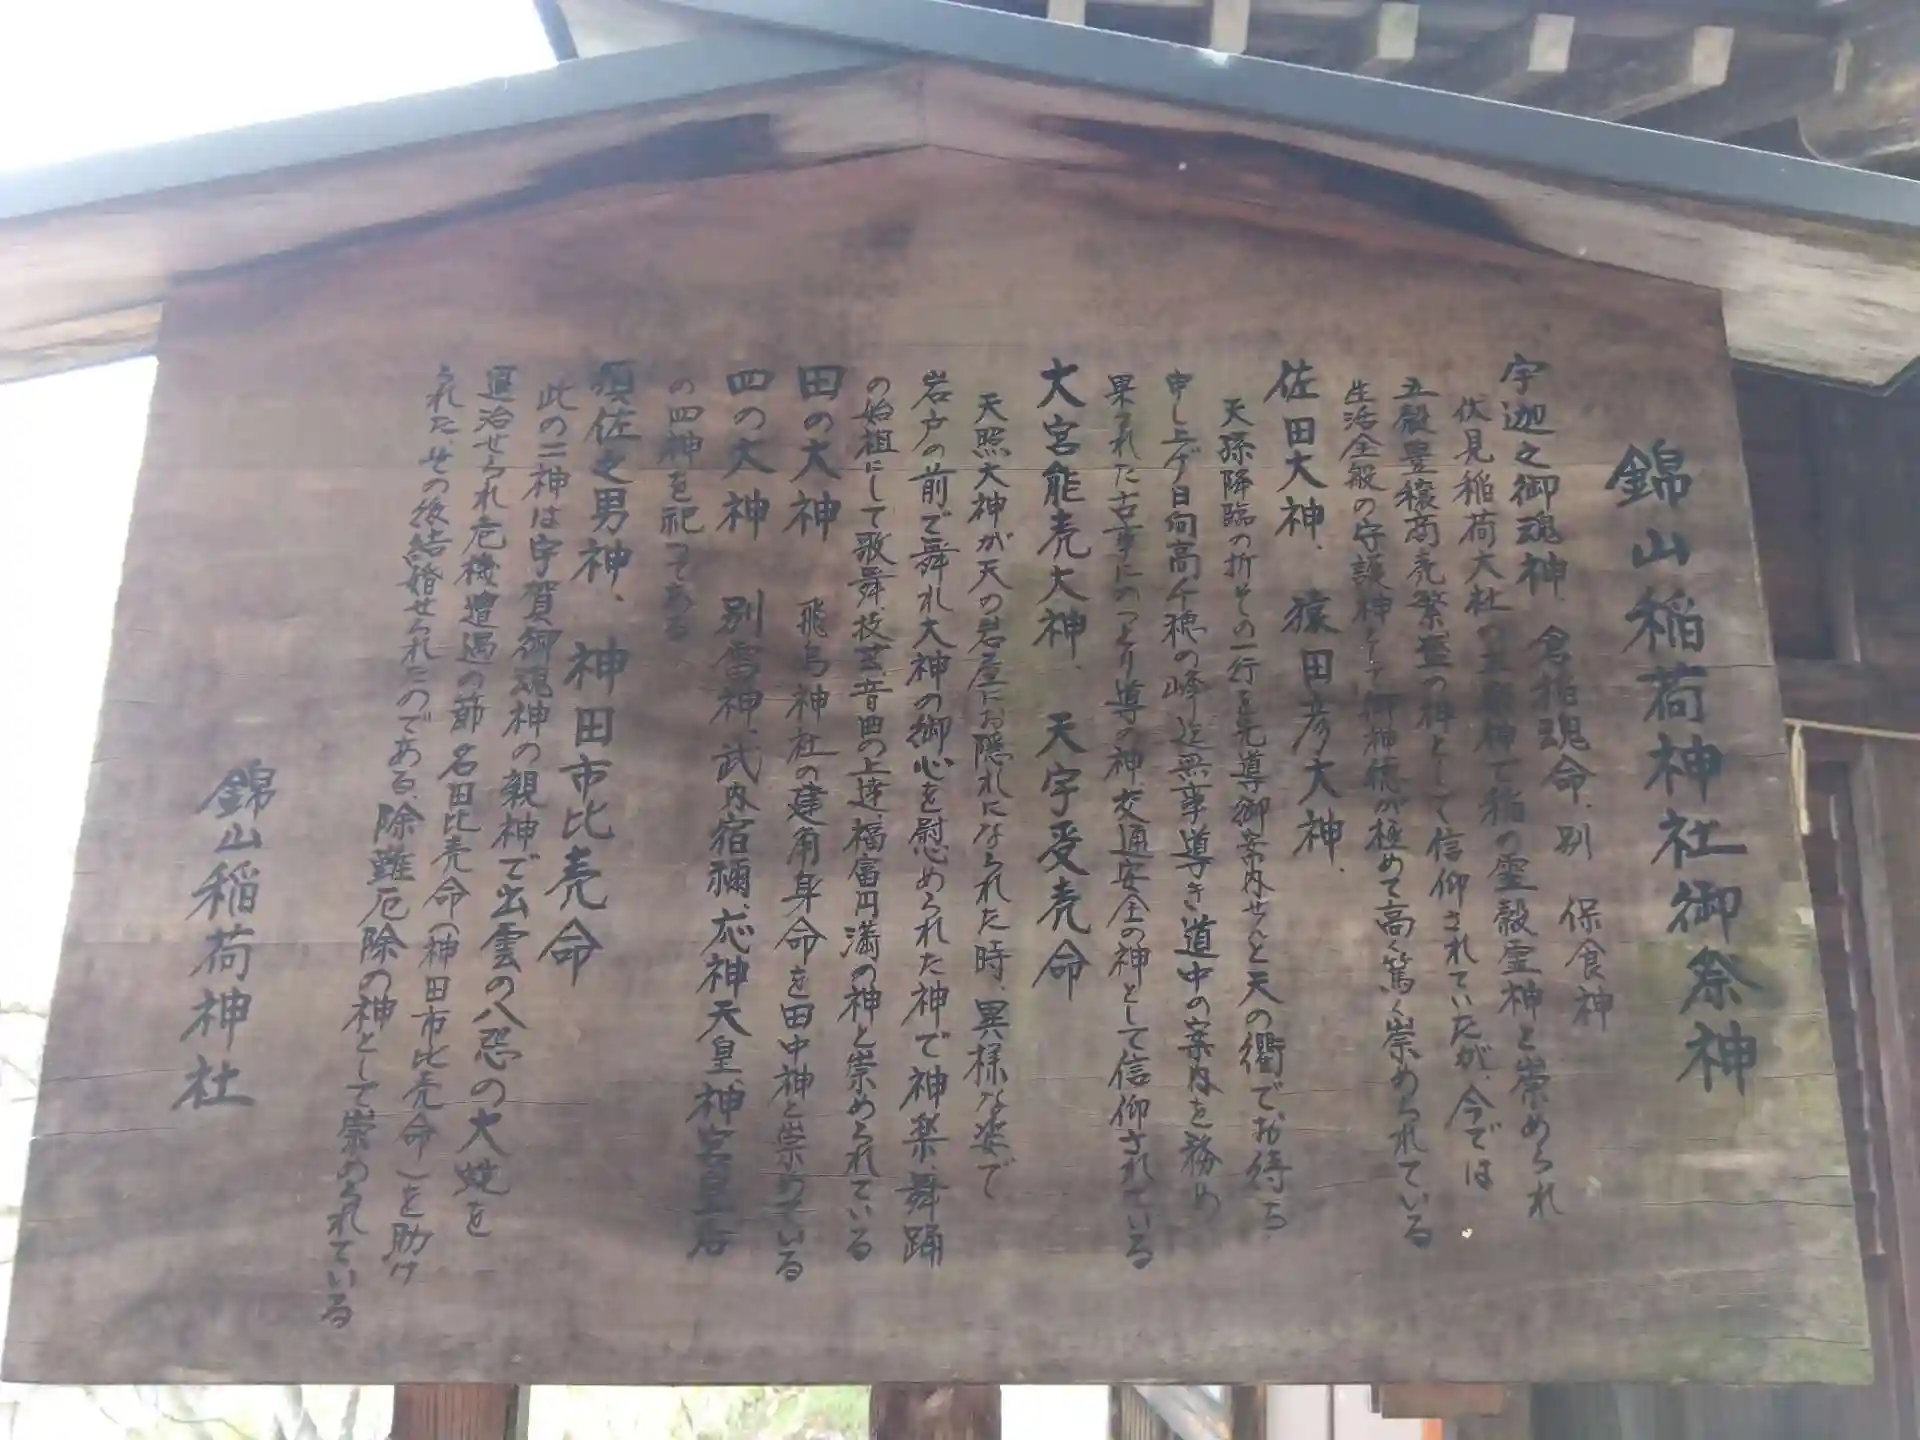 錦山稲荷神社御祭神
宇迦之御魂神、倉稲魂命、別 保食神
伏見稲荷大社の主祭神で稲の霊穀霊神と崇められ
五穀豊穣商売繁盛の神として信仰されていたが、今では
生活全般の守護神として御神徳が極めて高く篤く崇められている
佐田大神、猿田彦大神、
天孫降臨の折その一行を先導御案内せんと天の衢でお待ち
申し上げ日向高千穂の峰迄無事導き道中の案内を務め
果された古事にのっとり導の神交通安全の神として信仰されている
大宮能売大神、天宇受売命
天照大神が天の岩屋にお隠れになられた時、異様な姿で
岩戸の前で舞れ大神の御心を慰められた神で神楽、舞踊
の始祖にして歌舞、技芸、音曲の上達、福富円満の神と崇められている
田の大神 飛鳥神社の建角身命を田中神と崇めている
四の大神 別雷神、武内宿禰、応神天皇、神宮皇后
の四神を祀つてある
須佐之男神、神田市比売命
此の二神は宇賀御魂神の親神で出雲の八岐の大蛇を
退治せられ危機遭遇の節名田比売命(神田市比売命)を助け
られた、その後結婚せられたのである、除難厄除の神として崇められている
錦山稲荷神社